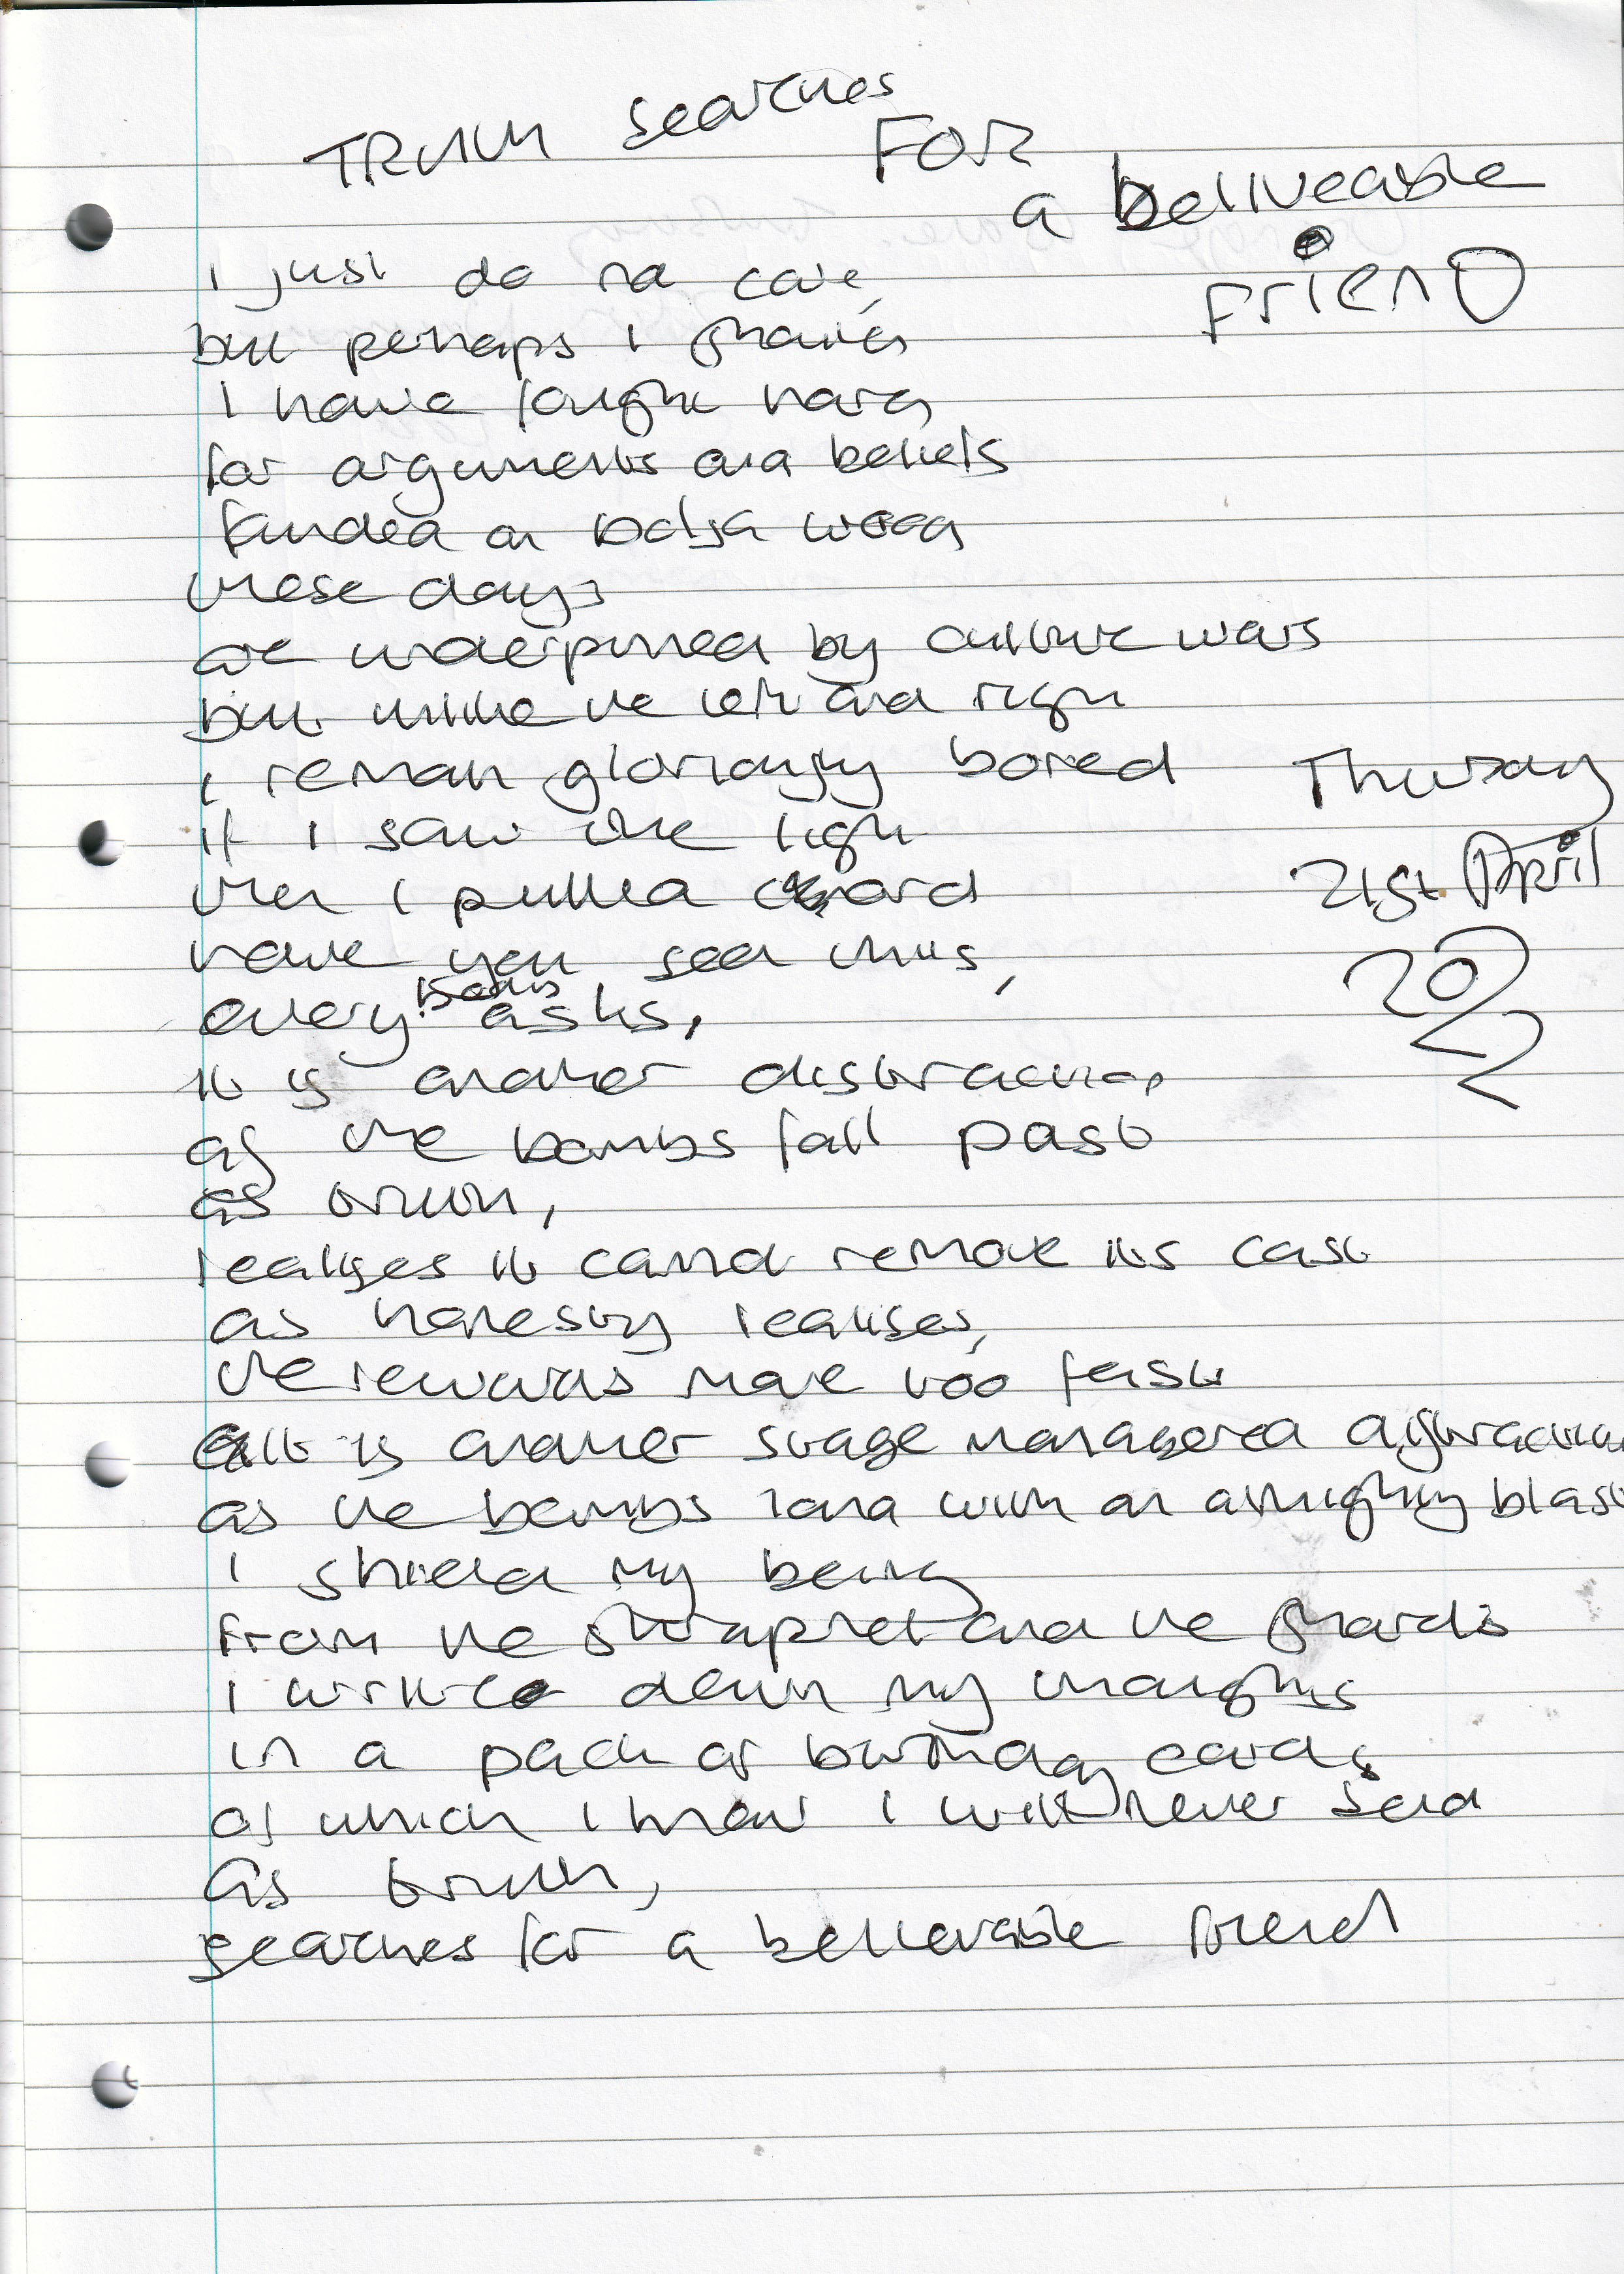 TRUTH searches
FOR
a beliveable
FrienD
i just do not care,
but perhaps i should
I have fought hard,
for arguments and beliefs
founded on balsa wood
these days
are underpinned by culture wars
but unlike the left and right
i remain gloriously bored
Thursday
if i saw the light
21st April
then i pulled chord
2022
have you seen this,
every asks,
it is another distraction,
as the bombs fall past
as truth,
realises it cannot remove its cast
as honesty realises,
the rewards move too fast
it is another stage managed distraction
as the bombs land with an almighty blast
i shield my being
from the shrapnel and the shards
i write down my thoughts
in a pack of birthday cards
of which i know i will never send
as truth,
searches for a believable friend